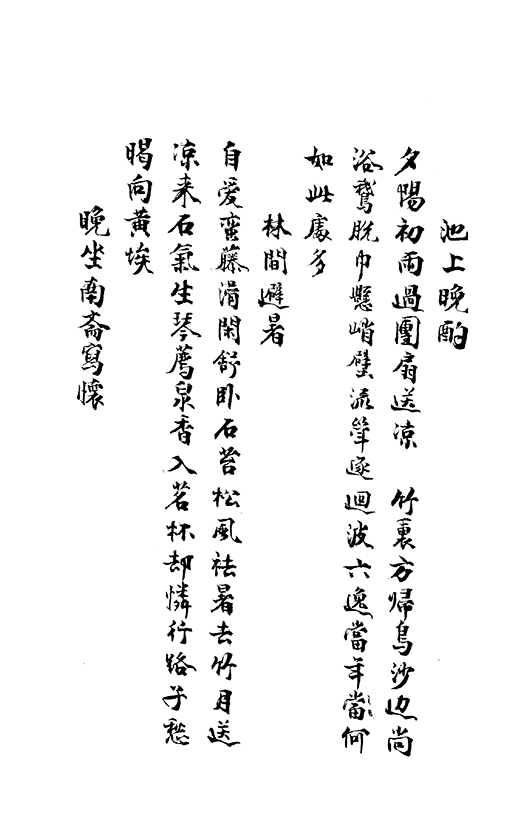 池上晚酌
夕陽初雨過團扇送凉 竹裏方歸鳥沙边尚
浴鵞脱巾懸峭壁流聲逐迴波六逸當年當何
如此處多
林間避暑
自愛蛮藤滑閑舒卧石苔松風祛暑去竹月送
凉来石氣生琴薦泉香入茗杯却憐行路子愁
暍向黄埃
晚坐南斎寫懷